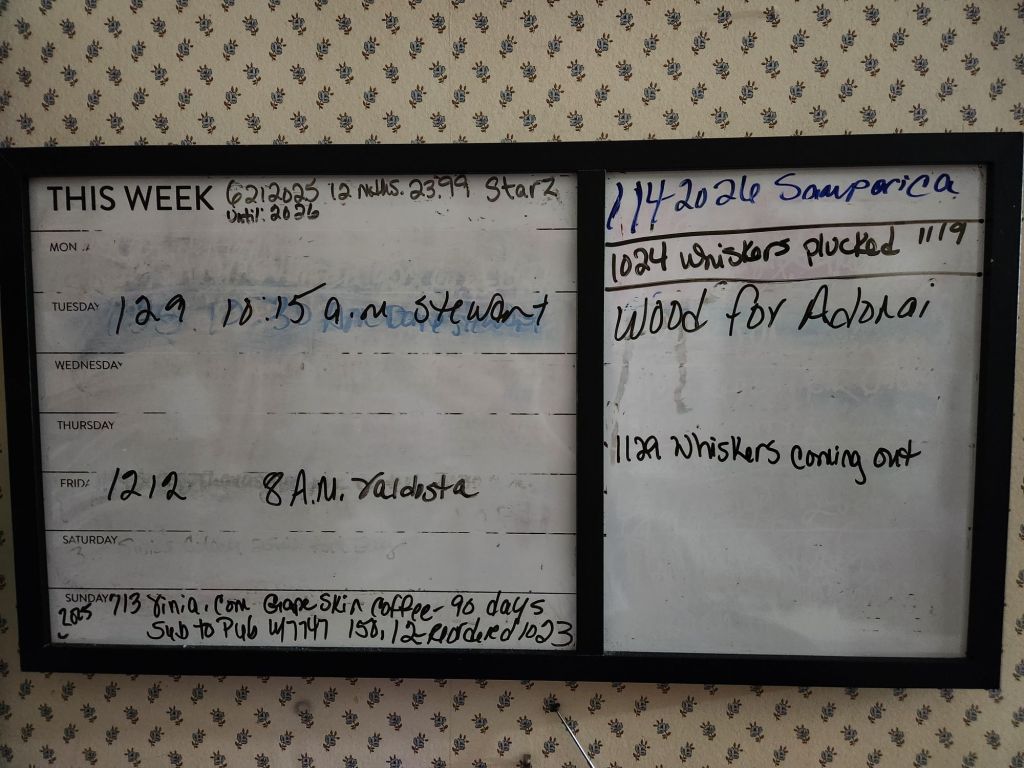 THIS WEEK 6212025 12 mths. 23.99 Starz
Until: 2026
MON
TUESDAY 129 10:15 a.m Stewart
WEDNESDAY
THURSDAY
FRIDA 1212 8 A.M. Valdosta
SATURDAY
SUNDAY 713 Vinia.Com Grape Skin Coffee - 90 days
2025 Sub to Pub W/7747 158.12 Reordered 1023
1142026 Samporica
1024 Whiskers plucked 1119
Wood for Adonai
1129 Whiskers coming out